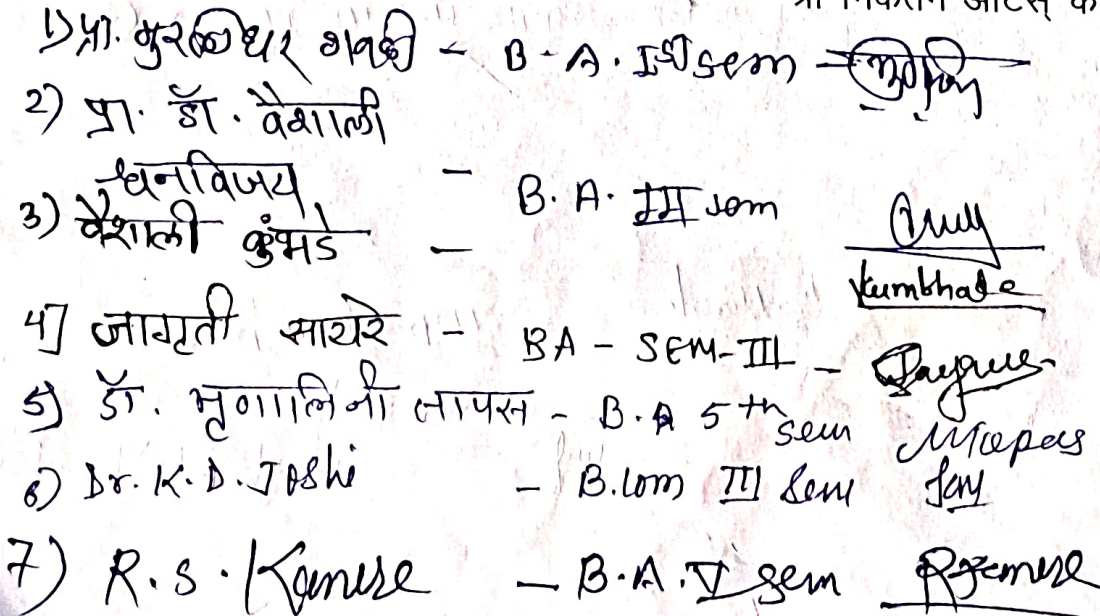 श्री निकेतन आर्टस् कॉ
1) प्रा. मुरलीधर गवळी - B-A. Ist sem
2) प्रा. डॉ. वैशाली
धनविजय - B.A. III sem
3) वैशाली कुंभडे - Kumbhade
4] जागृती सायरे - BA - SEM-III -
5) डॉ. मृणालिनी तापस - B.A 5th sem MTapas
6) Dr. K. D. Joshi - B.Com III Sem
7) R.S. Kamire - B.A. V Sem